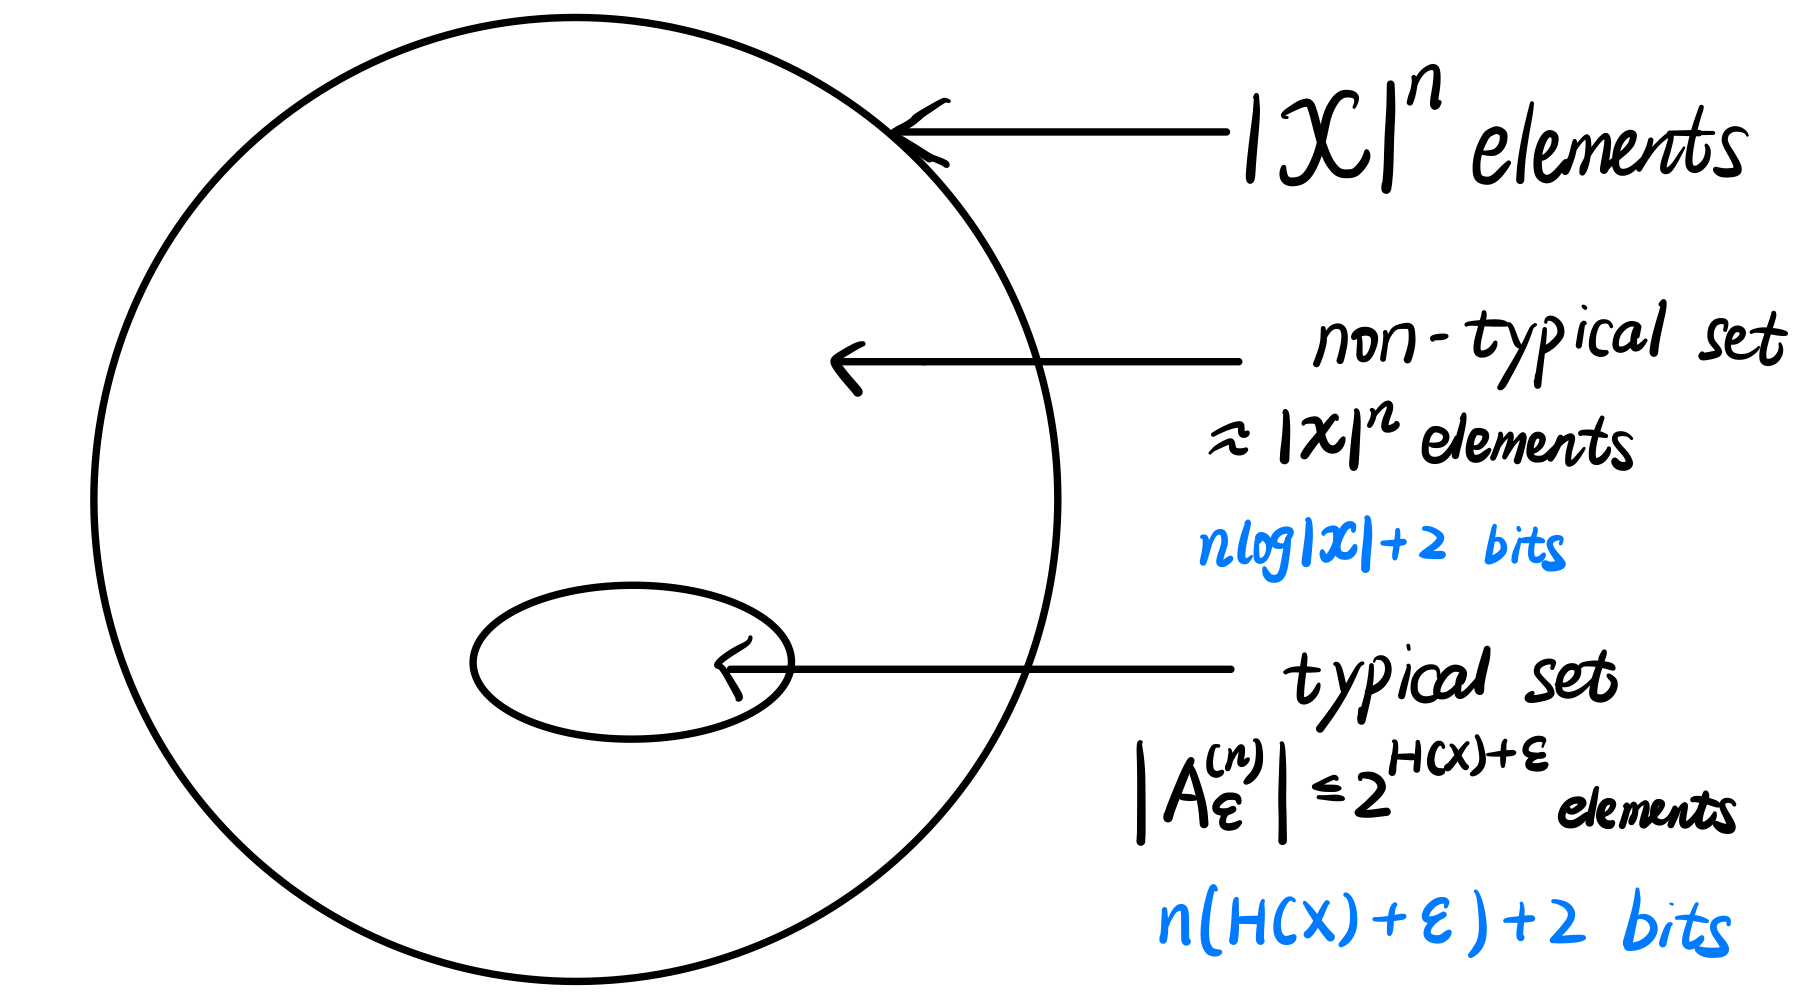 |𝒳|ⁿ elements
non-typical set
≈ |𝒳|ⁿ elements
nlog|𝒳|+2 bits
typical set
|A_ε^(n)| ≤ 2^{H(X)+ε} elements
n(H(X)+ε)+2 bits